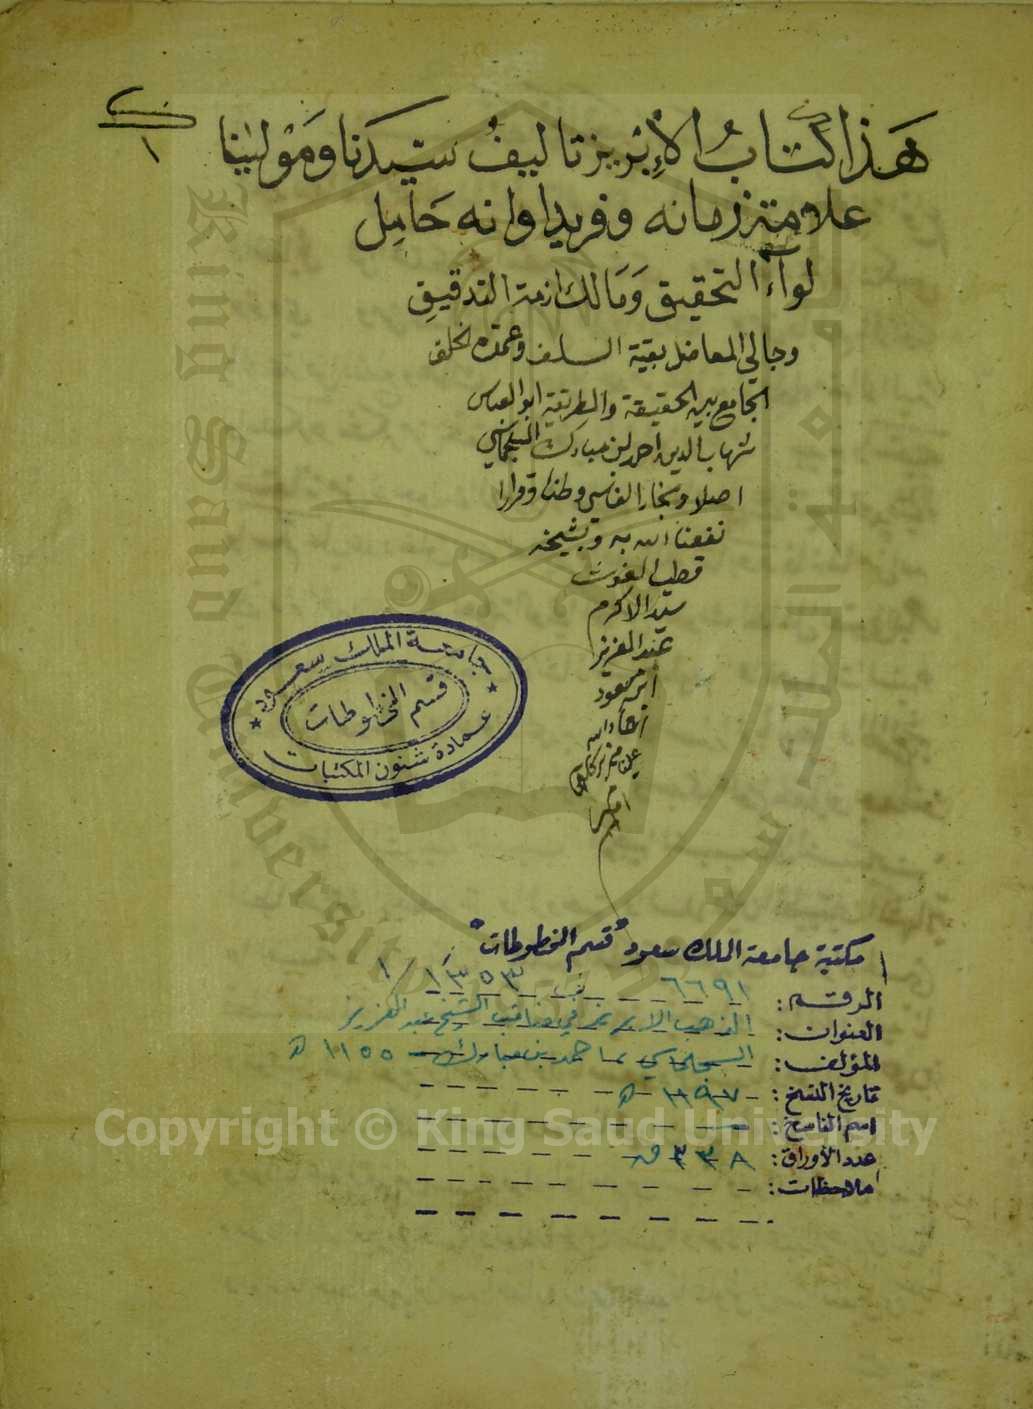 هَذا كتابُ الإبْريز تاليفُ سيّدَنا ومَوْلٰينا
١
علامة زمانه وفريد اوانه حَامِل
لوآء التحقيق وَمَالك ازمة التدقيقِ
وجالي المعاضل بقية السلف وعمدة الخلف
الجامع بين الحقيقة والطريقة ابو العباس
شهاب الدين احمد بن مبارك السجلماسي
اصلا ونجارا الفاسي وطنا وقرارا
نفعنا الله به وبشيخه
قطب الغوث
سيد الاكرم
عبد العزيز
ابن مسعود
افاد الله
علينا من بركاته
امين
جامعة الملك سعود
قسم المخطوطات
عمادة شئون المكتبات
مكتبة جامعة الملك سعود "قسم المخطوطات"
الرقم: ٦٦٩١ ف ١٣٥٣/١
العنوان: الذهب الابريز في مناقب الشيخ عبد العزيز
المؤلف: السجلماسي، احمد بن مبارك - ١١٥٥ هـ
تاريخ النسخ: ١١٩٧ هـ
اسم الناسخ:
عدد الأوراق: ٣٣٨ ق
ملاحظات:
King Saud University
Copyright © King Saud University